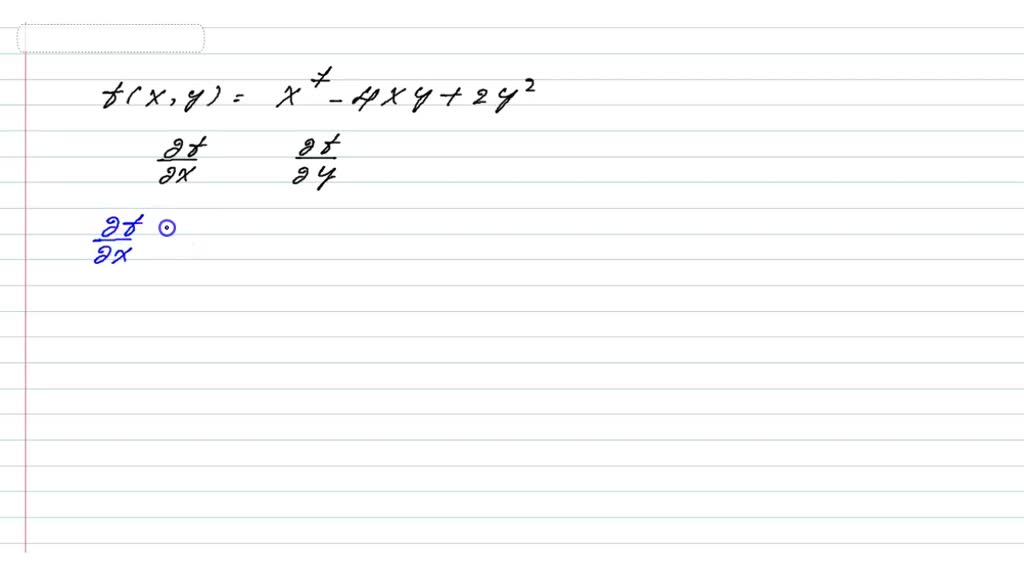 f(x,y) = x^7 - 4xy + 2y^2
∂f/∂x ∂f/∂y
∂f/∂x